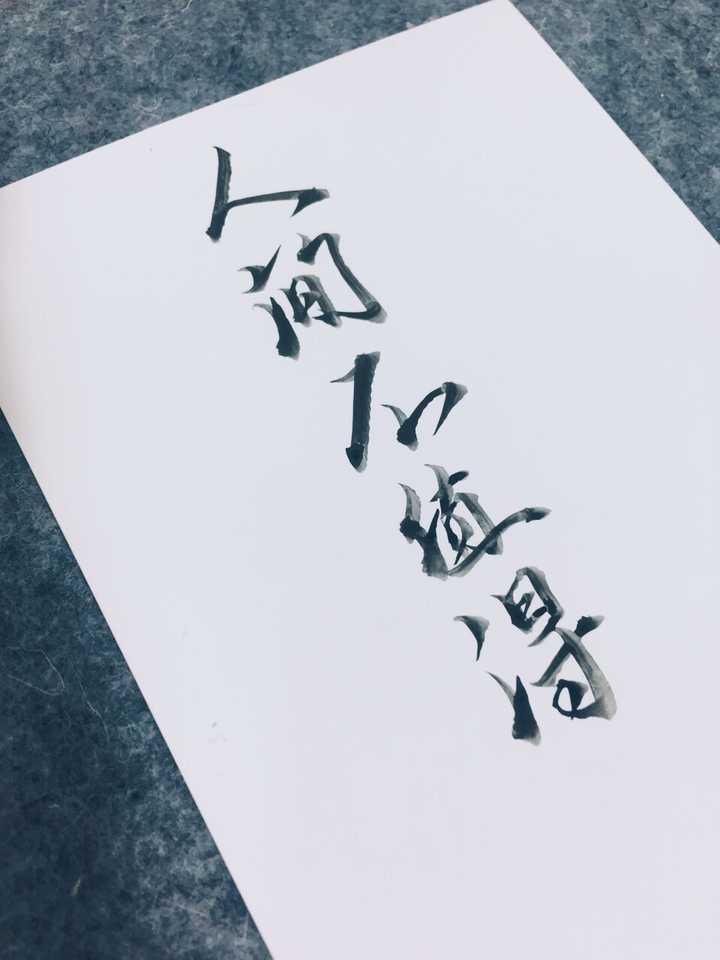 人间不值得